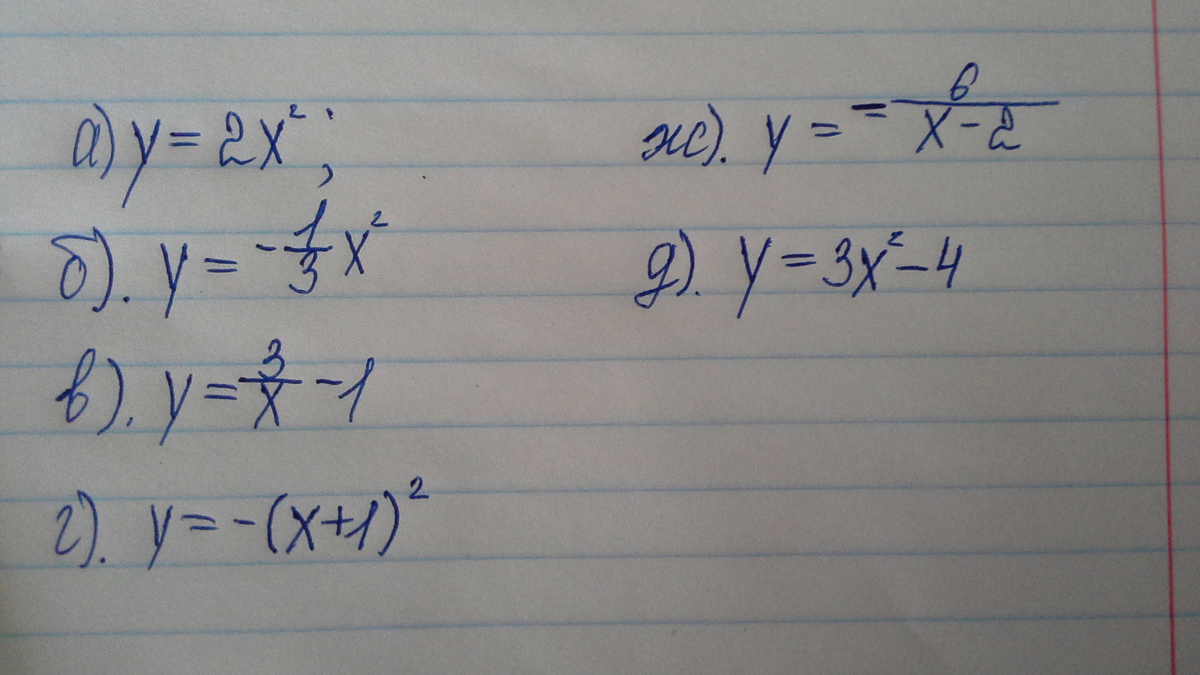 а) y = 2x²;
б). y = -1/3 x²
в). y = 3/x - 1
г). y = -(x+1)²
ж). y = - 6/(x-2)
д). y = 3x² - 4